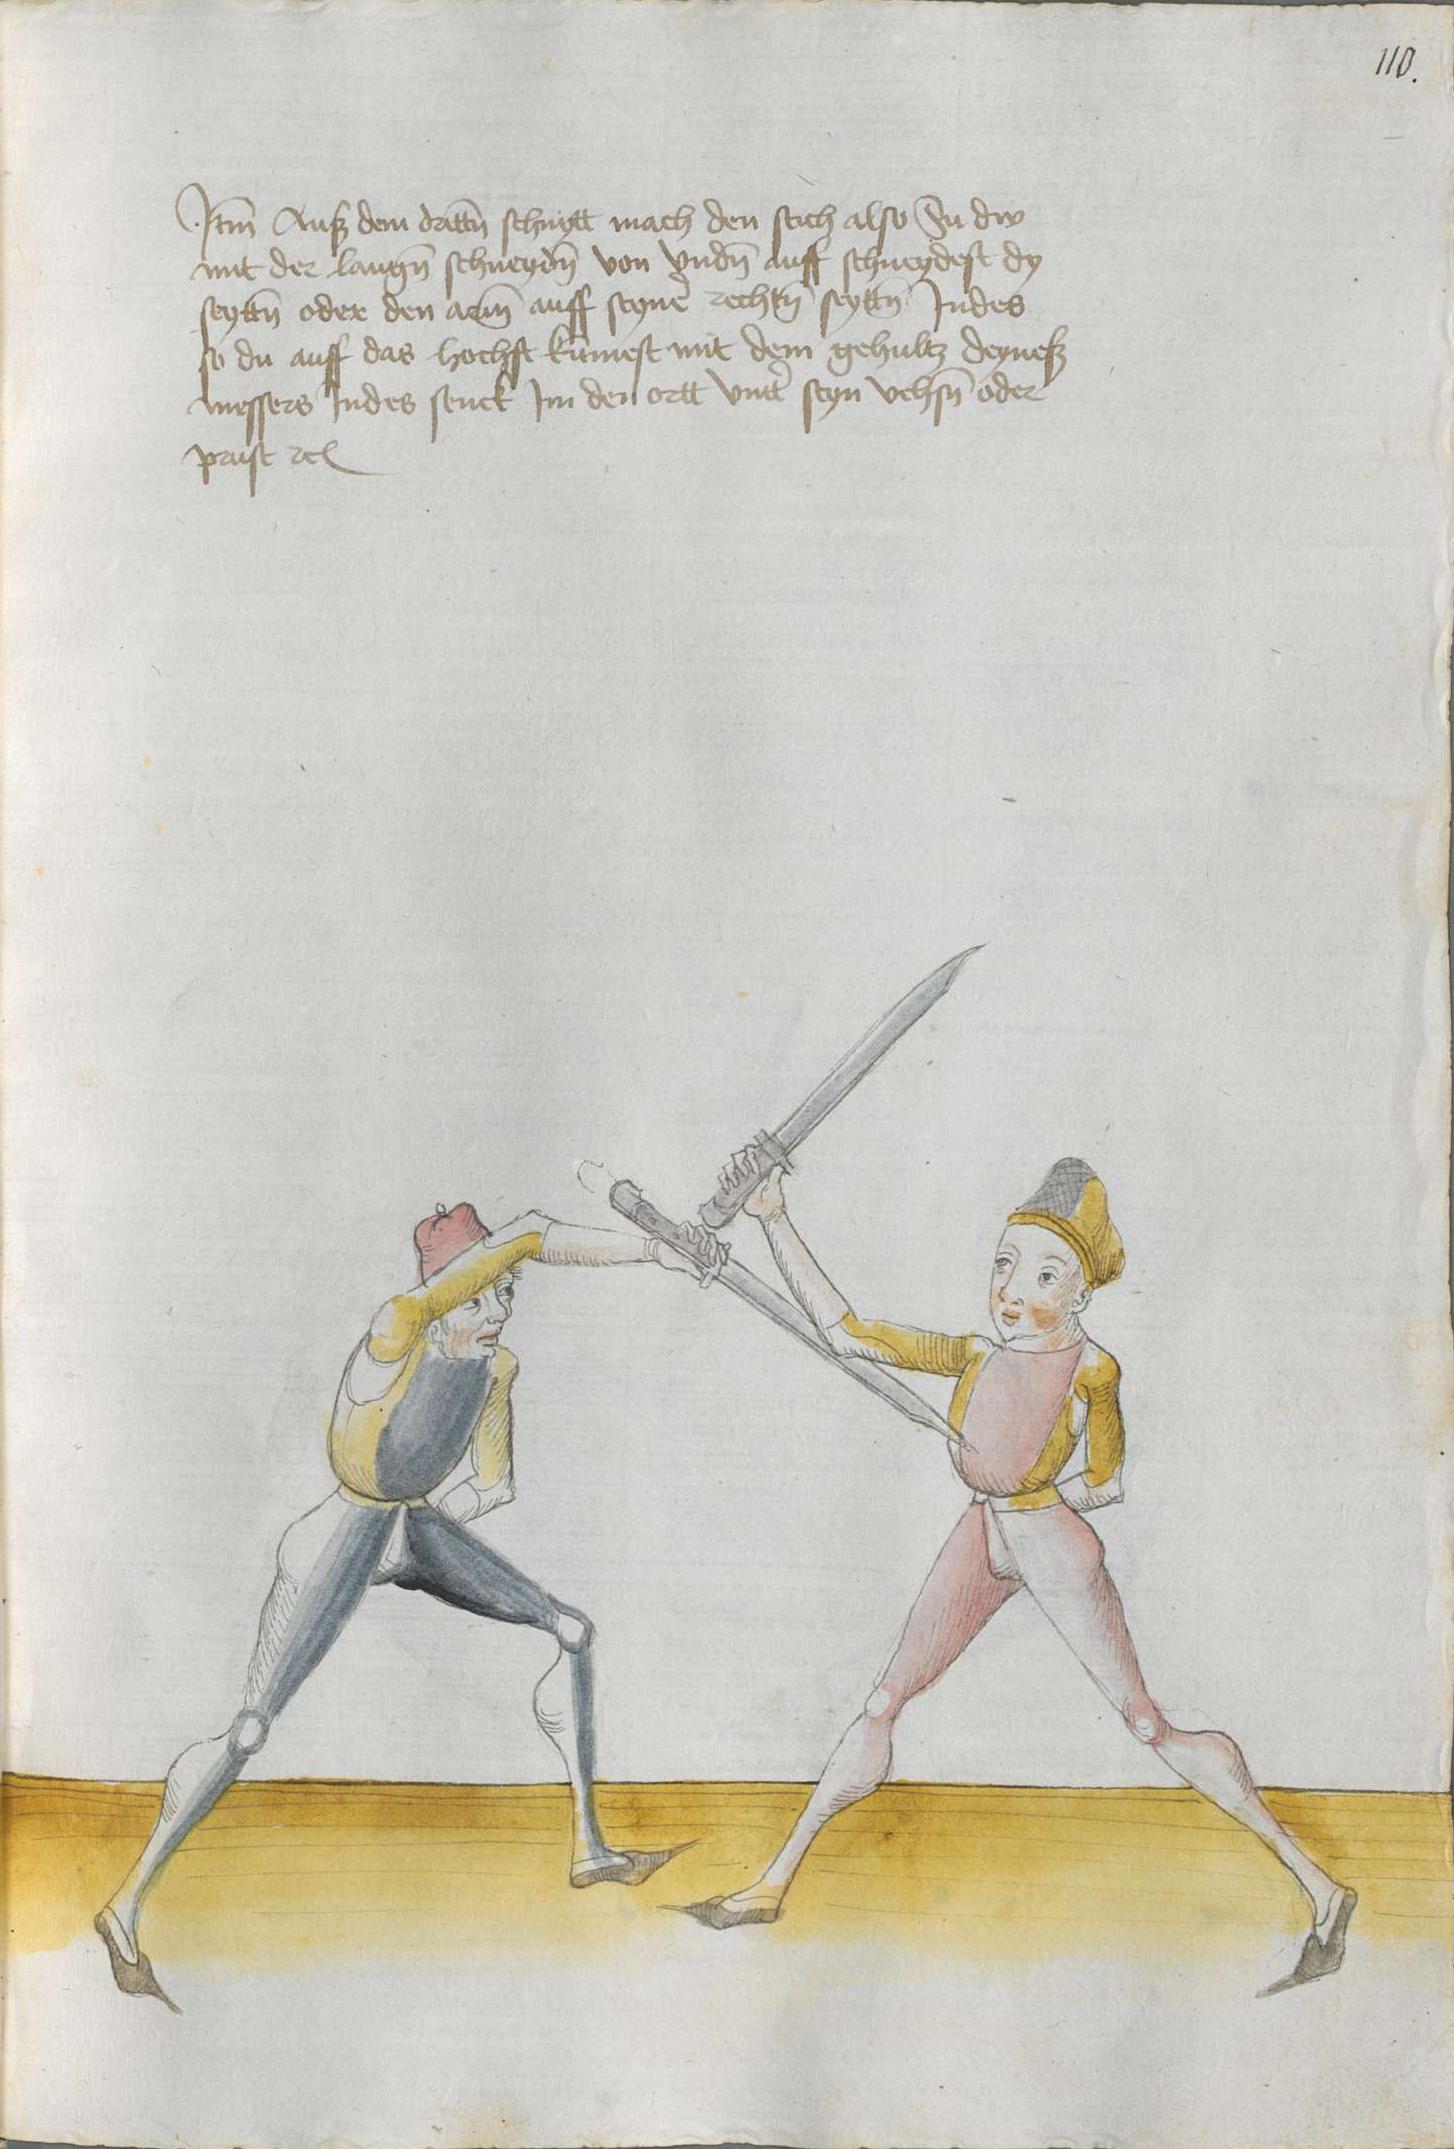 110.
Itm̄ Auß dem drittn̄ schnytt mach den stich also So dw
mit der langn̄ schneydn̄ von vndn̄ auff schneydest dy
seyttn̄ oder den arm̄ auff seyner rechtn̄ seyttn̄ Indes
so du auff das hochst kumest mit dem gehultz deyneß
messers Indes senck Im den ortt vntter seyn vchsn̄ oder
prust rc